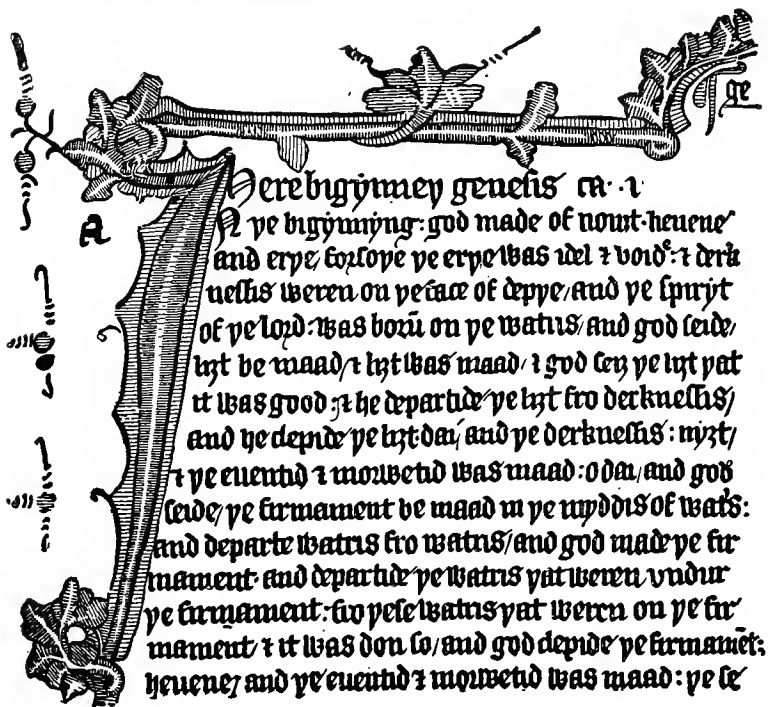 ge
Here bigynney genesis ca· i
a
In ye bigynnyng: god made of nouȝt· heuene
and erye/ forsoye ye erye was idel ⁊ voidᵉ: ⁊ derk
nessis weren on ye face of depye/ and ye spiryt
of ye lord: was borū on ye watris/ and god seide/
liȝt be maad/ ⁊ liȝt was maad/ ⁊ god seȝ ye liȝt yat
it was good: ⁊ he departide ye liȝt fro derknessis/
and he clepide ye liȝt· dai/ and ye derknessis: nyȝt/
⁊ ye euentid ⁊ morwetid was maad: o dai/ and god
seide/ ye firmament be maad in ye myddis of wat's:
and departe watris fro watris/ and god made ye fir
mament· and departide ye watris yat weren vndur
ye firmament: fro yese watris yat weren on ye fir
mament/ ⁊ it was don so/ and god clepide ye firmamēt:
heuene/ and ye euentid ⁊ morwetid was maad: ye se